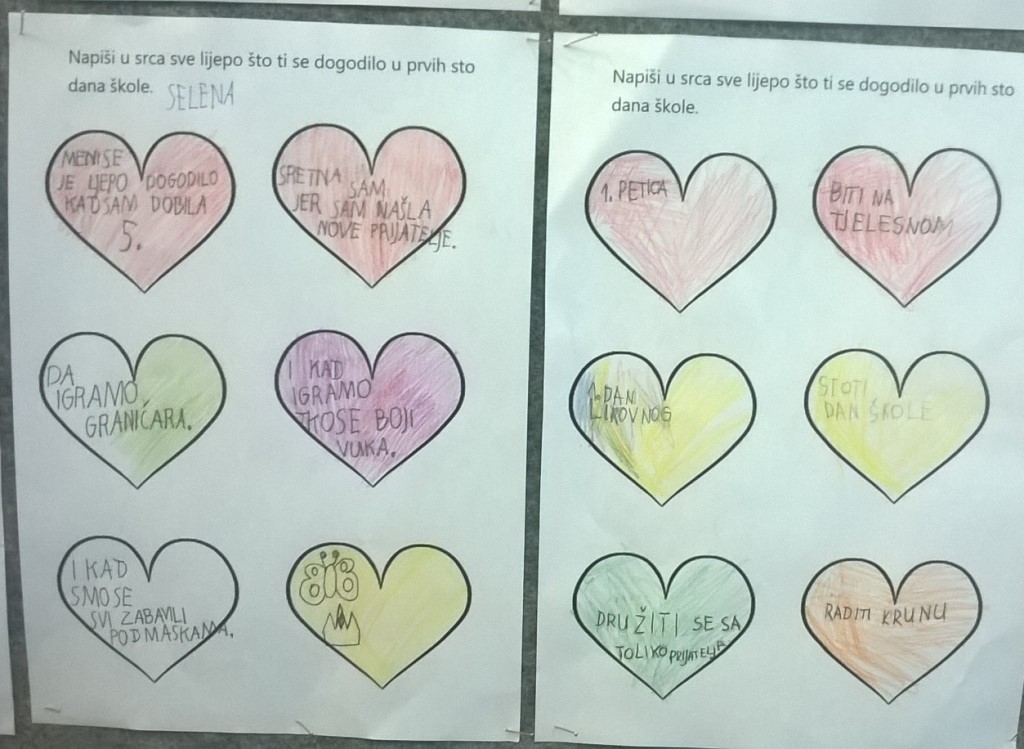 Napiši u srca sve lijepo što ti se dogodilo u prvih sto
dana škole. SELENA
MENI SE
JE LJEPO DOGODILO
KAD SAM DOBILA
5.
SRETNA SAM
JER SAM NAŠLA
NOVE PRIJATELJE.
DA
IGRAMO
GRANIČARA.
I KAD
IGRAMO
TKOSE BOJI
VUKA.
I KAD
SMO SE
SVI ZABAVILI
POD MASKAMA.
Napiši u srca sve lijepo što ti se dogodilo u prvih sto
dana škole.
1. PETICA
BITI NA
TJELESNOM
1. DAN
LIKOVNOG
STOTI
DAN ŠKOLE
DRUŽITI SE SA
TOLIKO PRIJATELJA
RADITI KRUNU